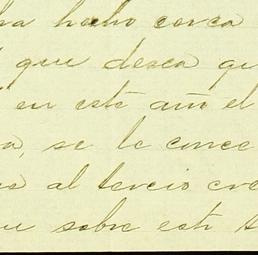 ha hecho cerca
que desea qu
en este año el
a, se le conce
al tercio cre
ue sobre este